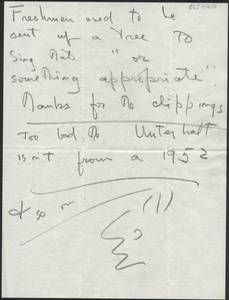 Freshmen used to be
sent up a tree to
sing that "or
something appropriate".
Thanks for the clippings
Too bad the Unterhalt
isnt from a 1952
& so on